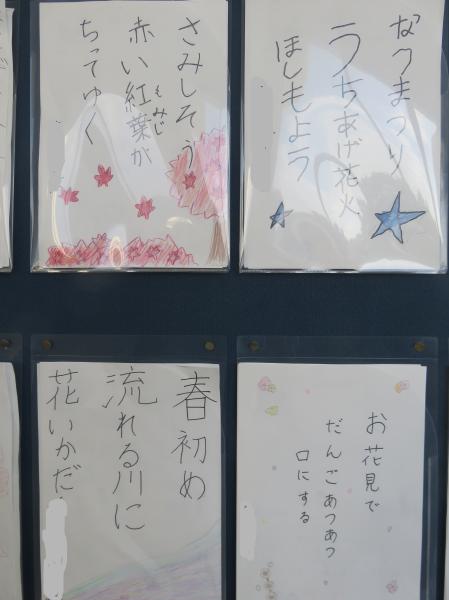 なつまつり
うちあげ花火
ほしもよう
さみしそう
赤い紅葉が
もみじ
ちってゆく
お花見で
だんごあつあつ
口にする
春初め
流れる川に
花いかだ